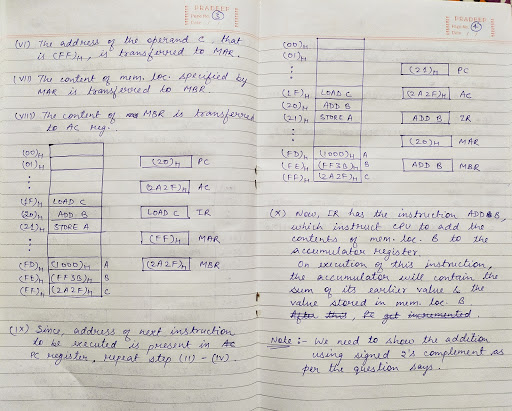 PRADEEP
Page No. 3
Date
(VI) The address of the operand C that
is (FF)H, is transferred to MAR.
(VII) The content of mem. loc. specified by
MAR is transferred to MBR.
(VIII) The content of MBR is transferred
to AC reg.
(00)H
(01)H
(20)H PC
(2A2F)H AC
(1F)H LOAD C
(20)H ADD B
LOAD C IR
(21)H STORE A
(FF)H MAR
(FD)H (1000)H A
(2A2F)H MBR
(FE)H (FF3B)H B
(FF)H (2A2F)H C
(IX) Since, address of next instruction
to be executed is present in AC
PC register, repeat step (II) - (IV).
PRADEEP
Page No. 4
Date
(00)H
(01)H
(21)H PC
(1F)H LOAD C
(2A2F)H AC
(20)H ADD B
(21)H STORE A
ADD B IR
(20)H MAR
(FD)H (1000)H A
(FE)H (FF3B)H B
ADD B MBR
(FF)H (2A2F)H C
(X) Now, IR has the instruction ADD B,
which instruct CPU to add the
contents of mem. loc. B to the
accumulator register.
On execution of this instruction,
the accumulator will contain the
sum of its earlier value & the
value stored in mem. loc. B
After this, PC get incremented.
Note :- We need to show the addition
using signed 2's complement as
per the question says.